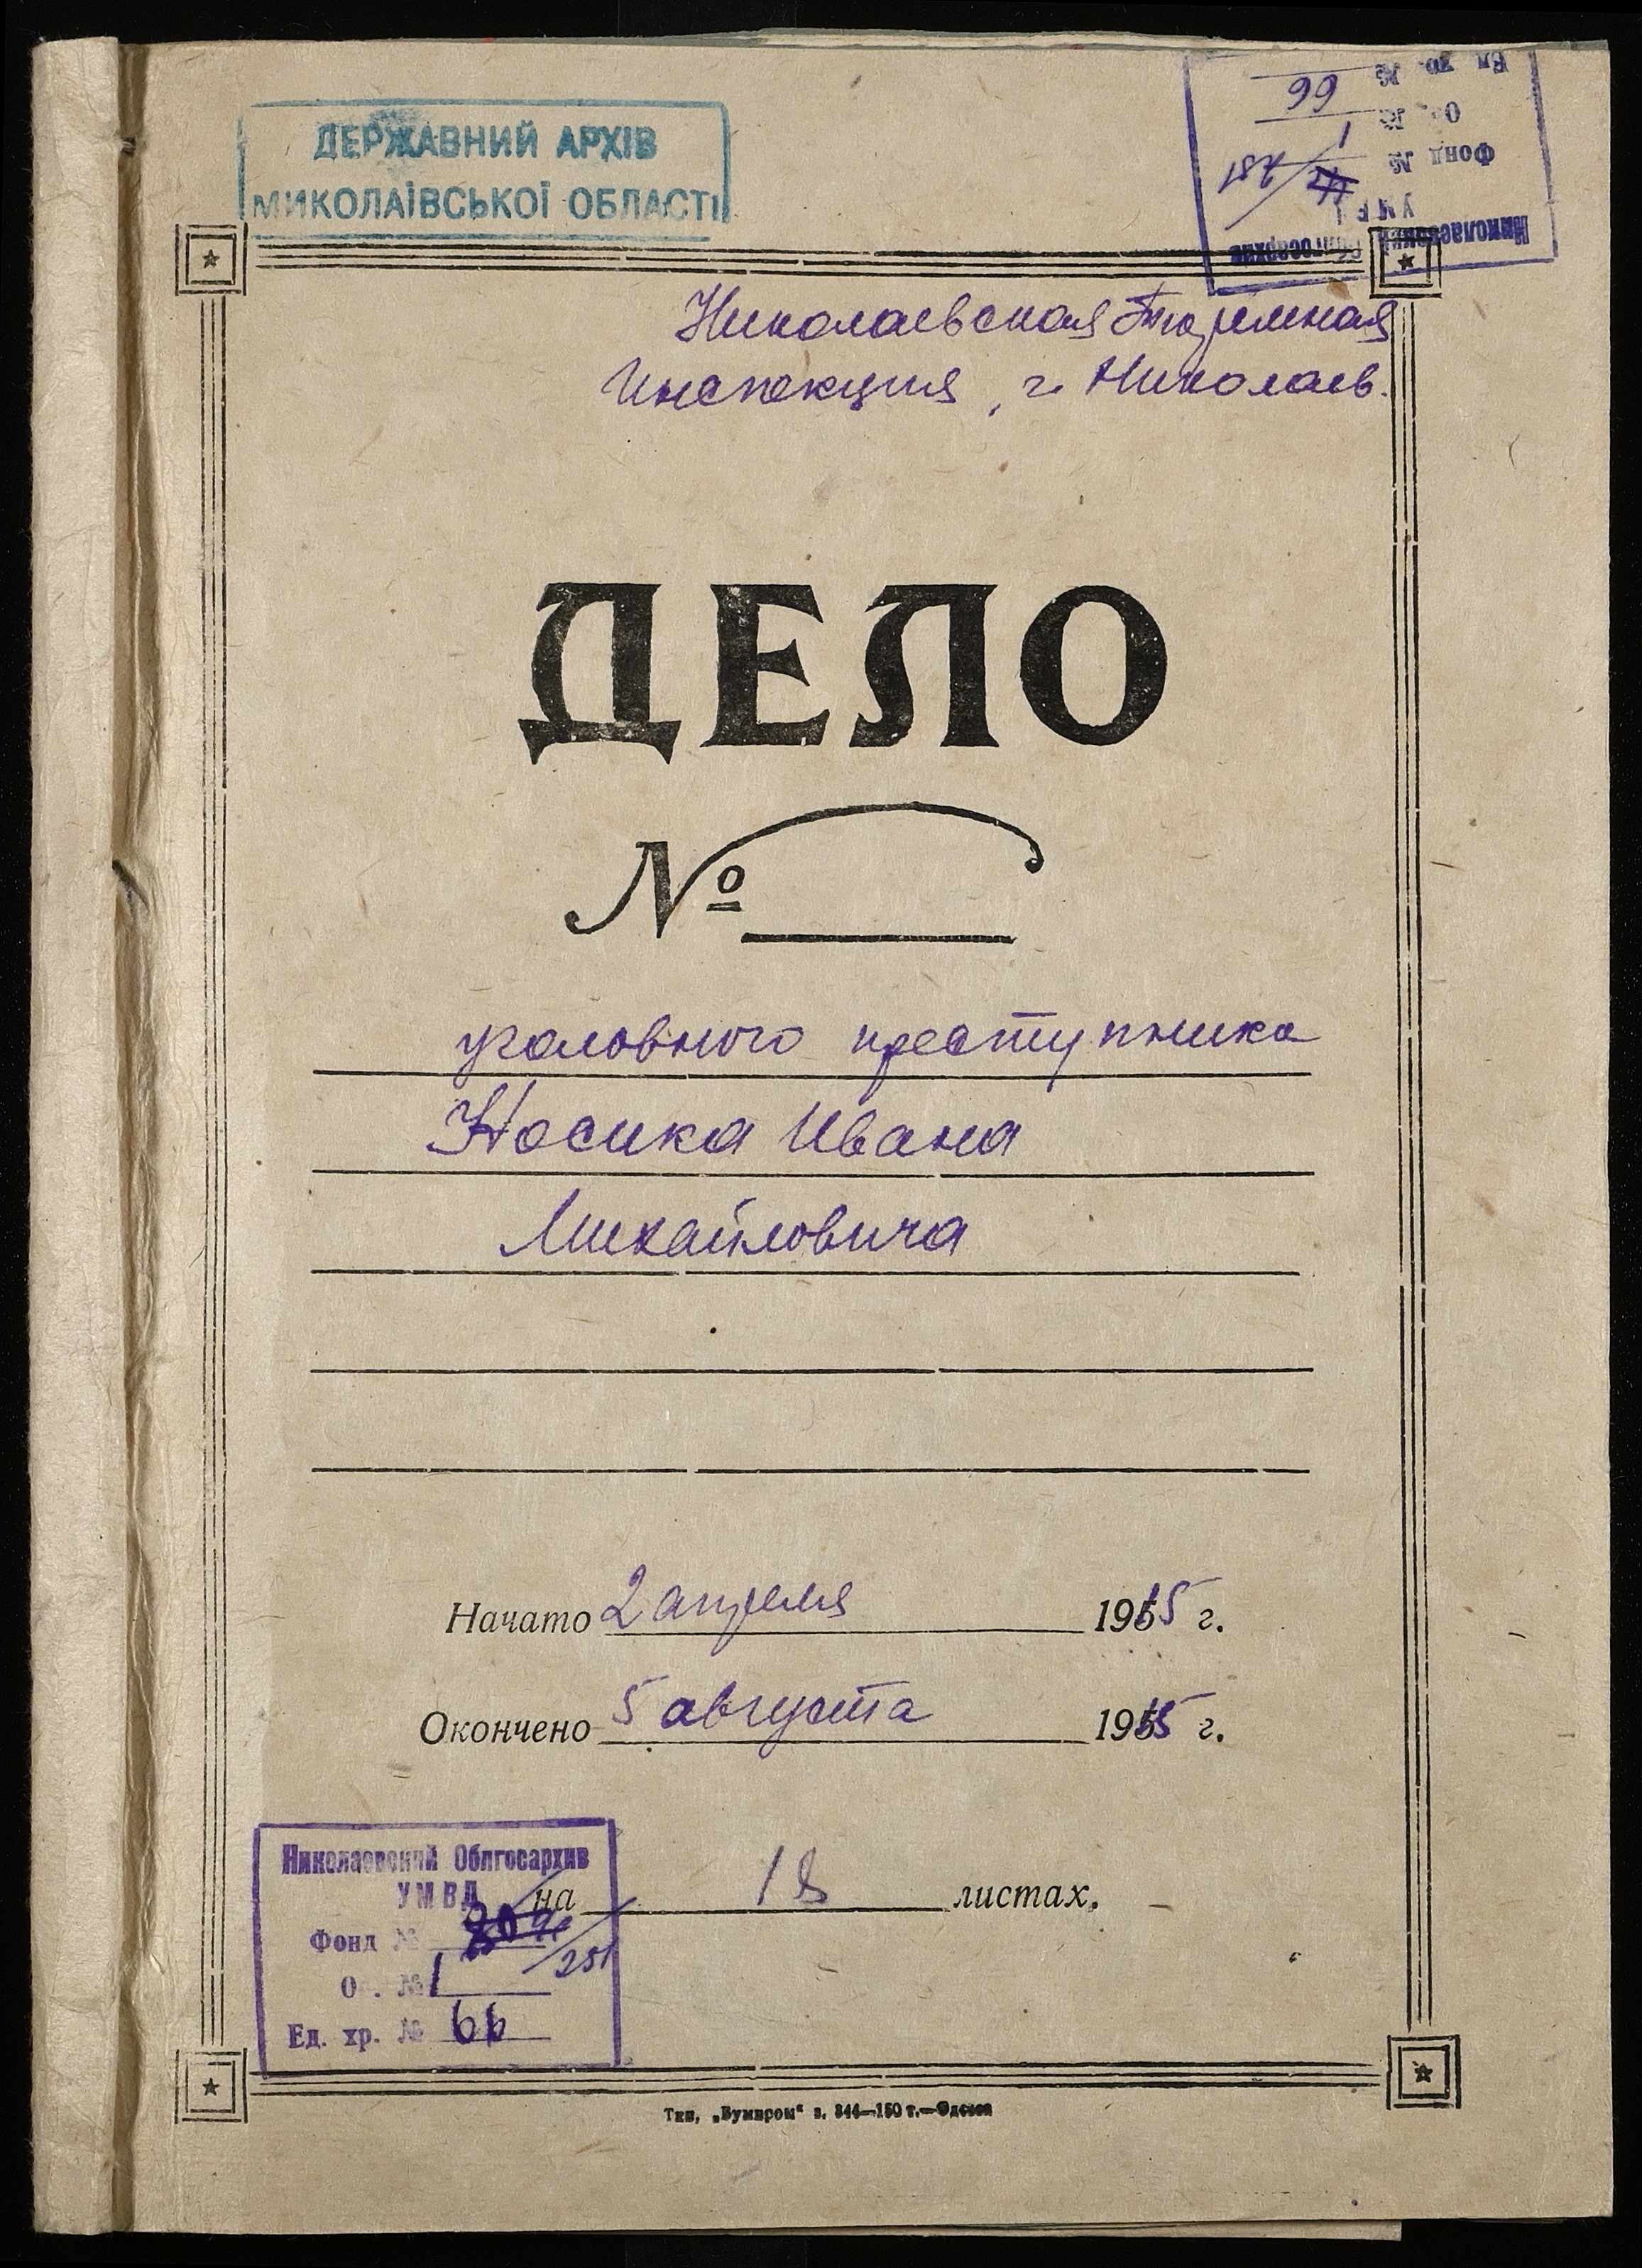 ДЕРЖАВНИЙ АРХІВ
МИКОЛАЇВСЬКОЇ ОБЛАСТІ
Николаевский Облгосархив
УМВД
Фонд № 251
Оп. № 1
Ед. хр. № 66
Николаевская Тюремная
Инспекция, г. Николаев.
ДЕЛО
№
уголовного преступника
Носика Ивана
Михайловича
Начато 2 апреля 1915 г.
Окончено 5 августа 1915 г.
на 18 листах.
Николаевский Облгосархив
УМВД
Фонд № 251
О . № 1
Ед. хр. № 66
Тип. „Бумпром“ з. 344—150 т.—Одесса